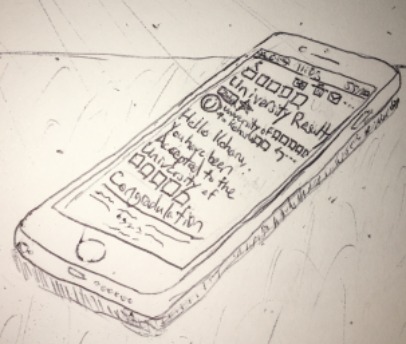 11:05
University Result
University of
Hello Koharu,
You have been
Accepted to the
University of
Congradulation